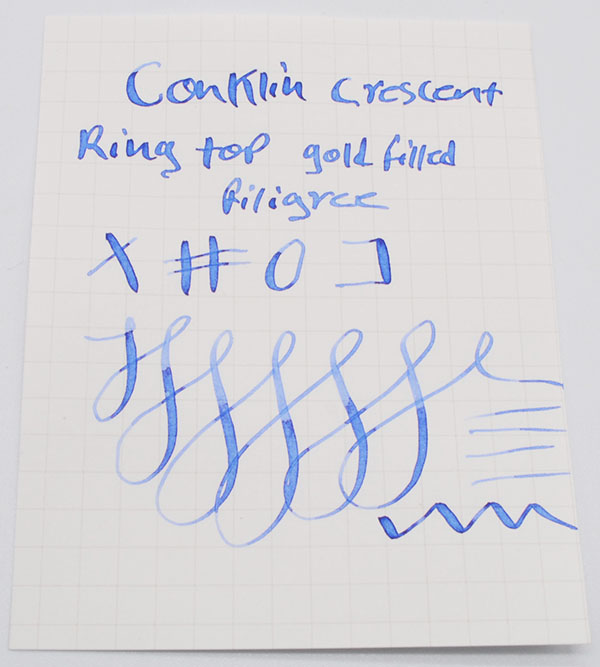 Conklin Crescent
Ring top gold filled
filigree
X # O ]